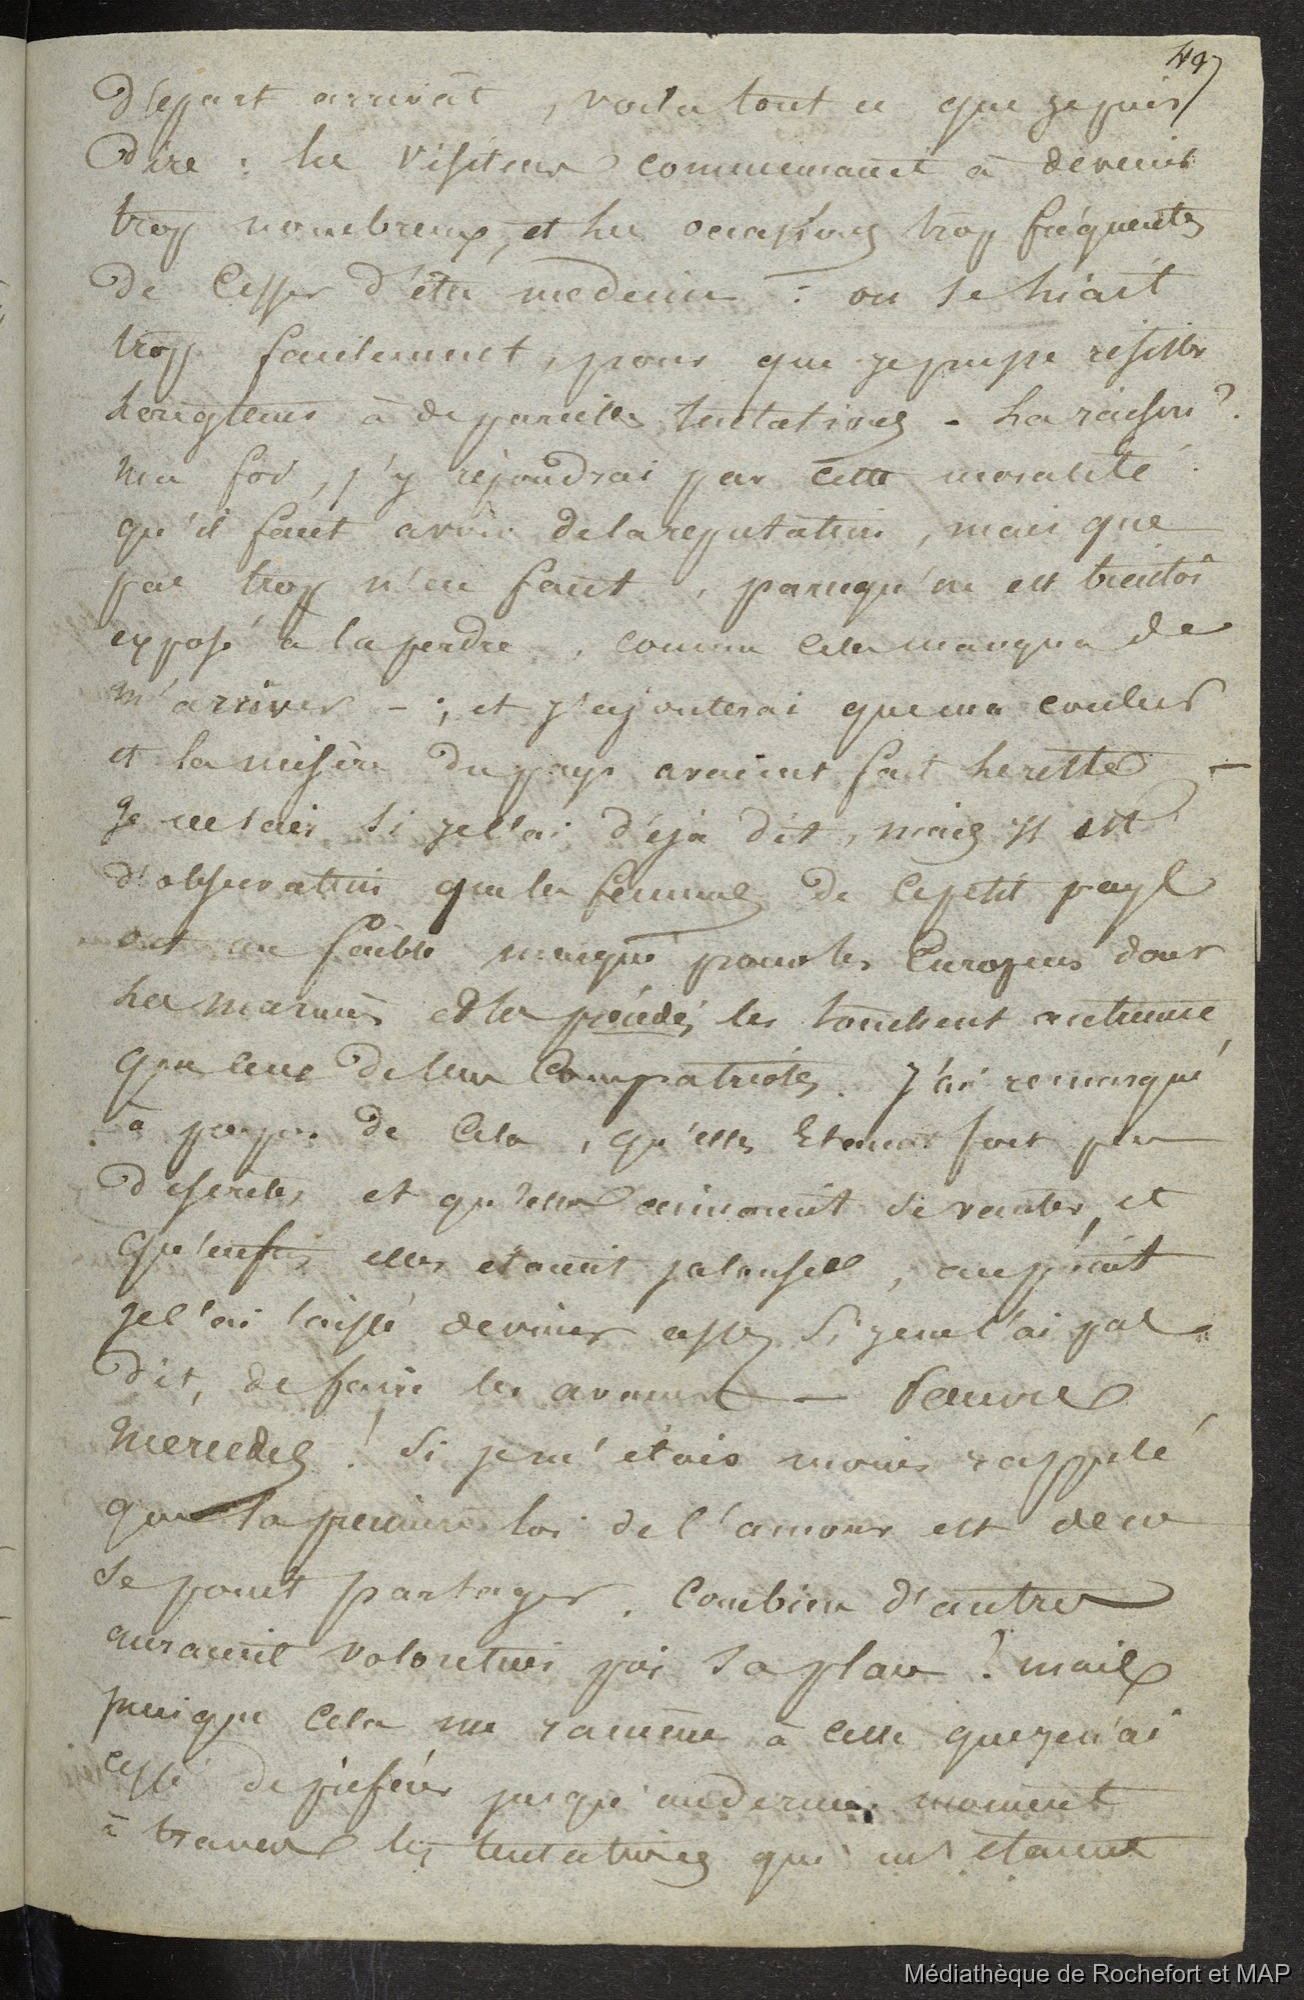 497
départ arrivât, voila tout ce que je puis
dire : les visiteurs commencaient à devenir
trop nombreux, et les occasions trop fréquentes
de cesser d'être medecin : on se liait
trop facilement, pour que je pusse résister
longtems à de pareilles tentatives - La raison ?
ma foi, j'y répondrai par cette moralité :
qu'il faut avoir de la reputation, mais que
pas trop n'en faut, parcequ'on est bientôt
exposé à la perdre, comme cela manqua de
m'arriver - ; et j'ajouterai que ma couleur
et la misère du pays avaient fait le reste -
Je ne sais si je l'ai déjà dit, mais il est
d'observation que les femmes de ce petit pays
ont un faible marqué pour les Européens dont
les manières et les procédés les touchent autrement
que ceux de leurs compatriotes. J'ai remarqué
à propos de cela, qu'elles Etaient fort peu
discrètes et qu'elles aimaient se vanter, et
qu'enfin elles étaient jalouses, au point
je l'ai laissé deviner assez si je ne l'ai pas
dit, de faire les avances — Pauvre
Mercedes ! Si je m'étais moins rappelé
que la première loi de l'amour est de ne
se point partager, Combien d'autres
auraient volontiers pris sa place ! mais
puisque cela me ramène à celle que je n'ai
cessé de préférer jusqu'au dernier moment
à travers les tentatives qui m'étaient
Médiathèque de Rochefort et MAP